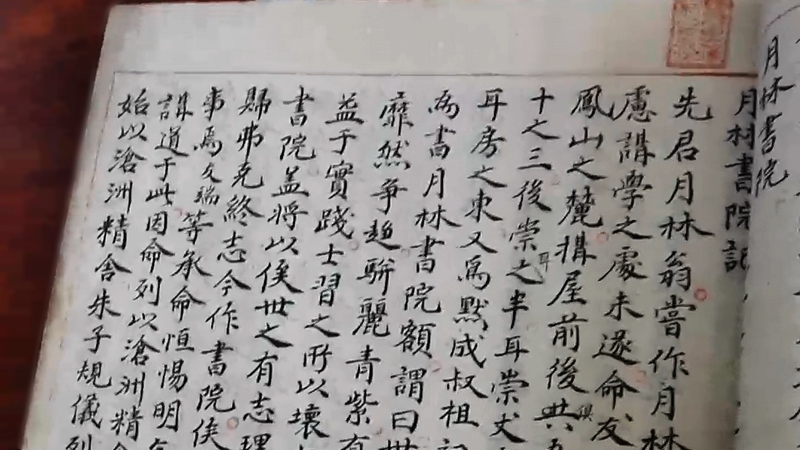 月林書院
月林書院記
先君月林翁嘗作月林
慮講學之處未遂命友
鳳山之麓搆屋前後共五
十之三後崇之半耳崇丈
耳房之東又為默成叔祖
為書月林書院額謂曰世
靡然爭趍駢麗青紫有
益于實踐士習之所以壞
書院蓋將以俟世之有志理
歸弗克終志今作書院俟
事焉文端等承命恒惕明
講道于此因命列以滄洲精
始以滄洲精舍朱子規儀列